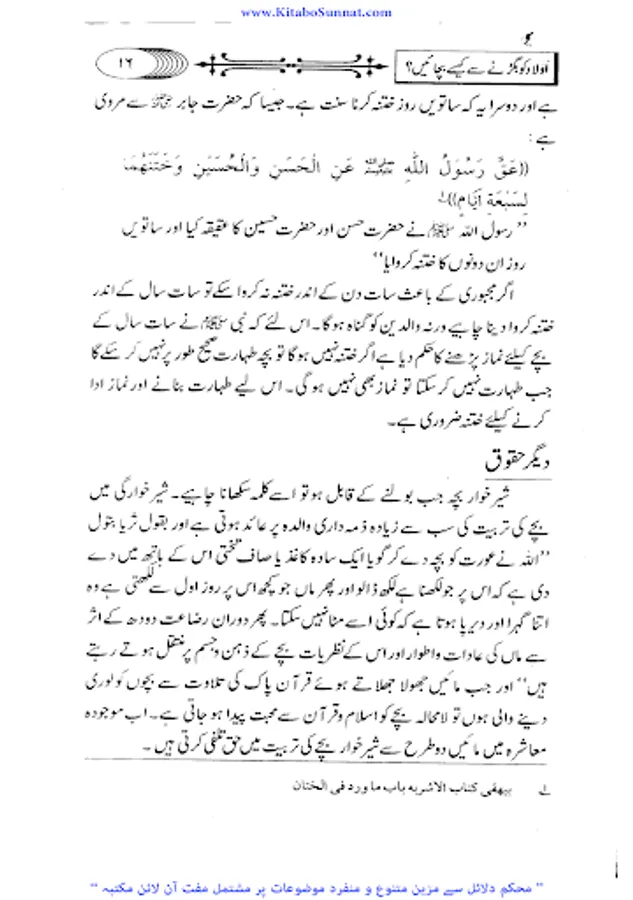 www.KitaboSunnat.com
اولاد کو بگڑنے سے کیسے بچائیں؟
۱۶
ہے اور دوسرا یہ کہ ساتویں روز ختنہ کرنا سنت ہے۔ جیسا کہ حضرت جابر رضی اللہ عنہ سے مروی
ہے:
((عَقَّ رَسُولُ اللهِ ﷺ عَنِ الْحَسَنِ وَالْحُسَيْنِ وَخَتَنَهُمَا
لِسَبْعَةِ أَيَّامٍ))۱
’’رسول اللہ ﷺ نے حضرت حسن اور حضرت حسین کا عقیقہ کیا اور ساتویں
روز ان دونوں کا ختنہ کروایا‘‘
اگر مجبوری کے باعث سات دن کے اندر ختنہ نہ کروا سکے تو سات سال کے اندر
ختنہ کروا دینا چاہیے ورنہ والدین کو گناہ ہو گا۔ اس لئے کہ نبی ﷺ نے سات سال کے
بچے کیلئے نماز پڑھنے کا حکم دیا ہے اگر ختنہ نہیں ہو گا تو بچہ طہارت صحیح طور پر نہیں کر سکے گا
جب طہارت نہیں کر سکتا تو نماز بھی نہیں ہو گی۔ اس لیے طہارت بنانے اور نماز ادا
کرنے کیلئے ختنہ ضروری ہے۔
دیگر حقوق
شیر خوار بچہ جب بولنے کے قابل ہو تو اسے کلمہ سکھانا چاہیے۔ شیر خوارگی میں
بچے کی تربیت کی سب سے زیادہ ذمہ داری والدہ پر عائد ہوتی ہے اور بقول ثریا بتول
’’اللہ نے عورت کو بچہ دے کر گویا ایک سادہ کاغذ یا صاف تختی اس کے ہاتھ میں دے
دی ہے کہ اس پر جو لکھنا ہے لکھ ڈالو اور پھر ماں جو کچھ اس پر روز اول سے لکھتی ہے وہ
اتنا گہرا اور دیرپا ہوتا ہے کہ کوئی اسے مٹا نہیں سکتا۔ پھر دوران رضاعت دودھ کے اثر
سے ماں کی عادات و اطوار اور اس کے نظریات بچے کے ذہن و جسم پر منتقل ہوتے رہتے
ہیں‘‘ اور جب مائیں جھولا جھلاتے ہوئے قرآن پاک کی تلاوت سے بچوں کو لوری
دینے والی ہوں تو لامحالہ بچے کو اسلام و قرآن سے محبت پیدا ہو جاتی ہے۔ اب موجودہ
معاشرہ میں مائیں دو طرح سے شیر خوار بچے کی تربیت میں حق تلفی کرتی ہیں۔
۱ بیهقی کتاب الاشربه باب ما ورد فی الختان
’’محکم دلائل سے مزین متنوع و منفرد موضوعات پر مشتمل مفت آن لائن مکتبہ‘‘